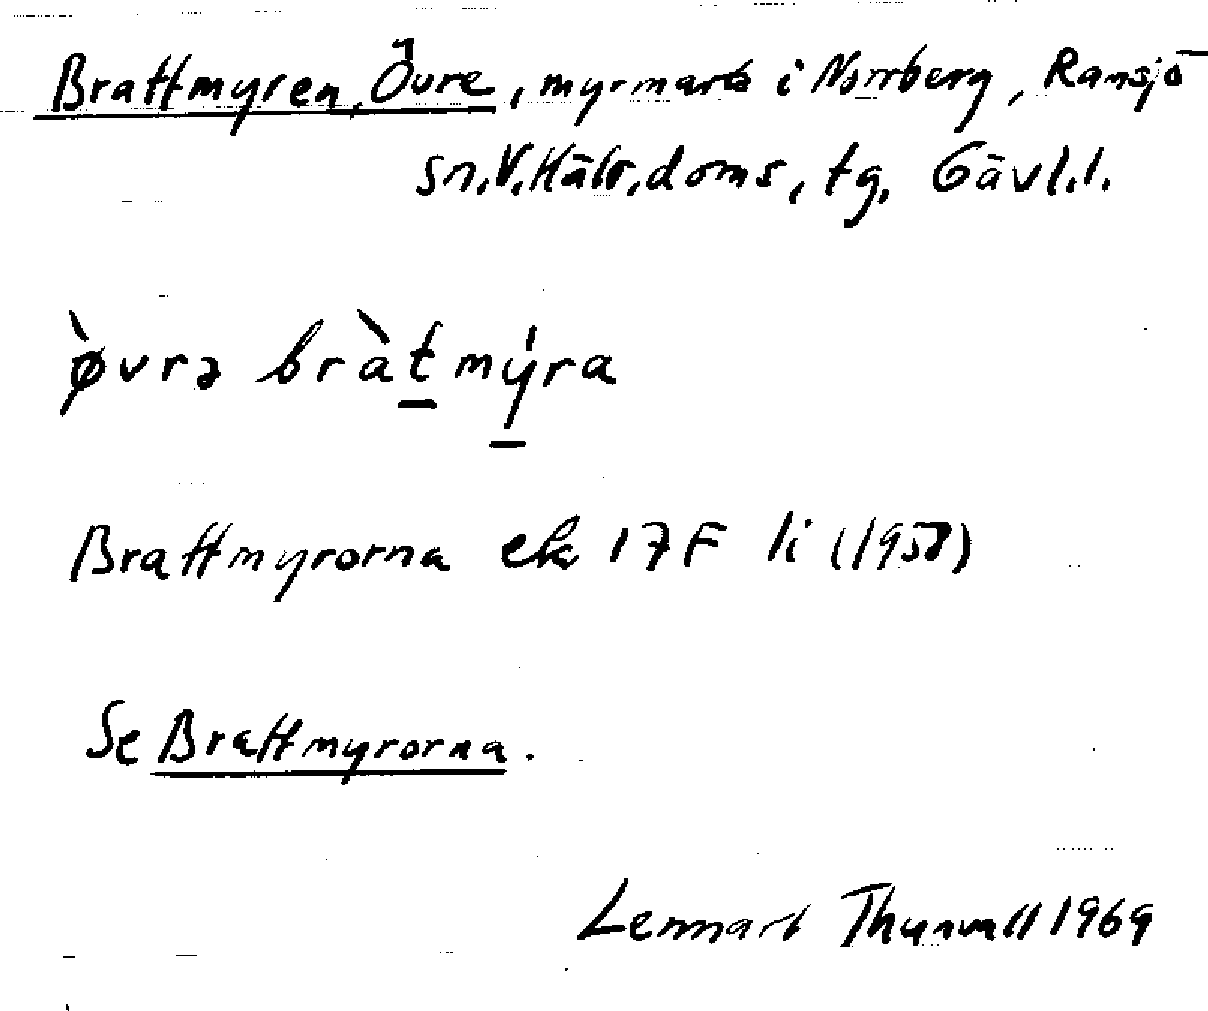 Brattmyren, Övre, myrmark i Norrberg, Ramsjö
sn, V. Häls. doms, tg, Gävl. l.
ø̀vrə bràt̲mý̲ra
Brattmyrorna ek 17F 1i (1957)
Se Brattmyrorna.
Lennart Thunvall 1969